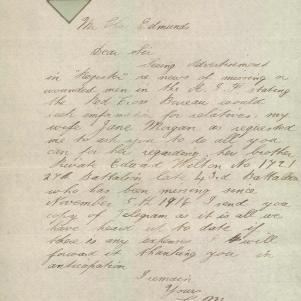 Mr Chas Edmunds
Dear Sir
Seeing Advertisement
in "Register" re news of missing or
wounded men in the A.I.F stating
the Red Cross Bureau would
seek information for relatives, my
wife Jane Morgan, as requested
me to ask you to do all you
can for her regarding her brother
Private Edward Wilton No 1721
27th Battalion late 43rd Battalion
who has been missing since
November 5th 1916 I send you
copy of Telegram as it is all we
have heard up to date if
there is any expenses I will
forward it thanking you in
anticipation
I remain
Yours